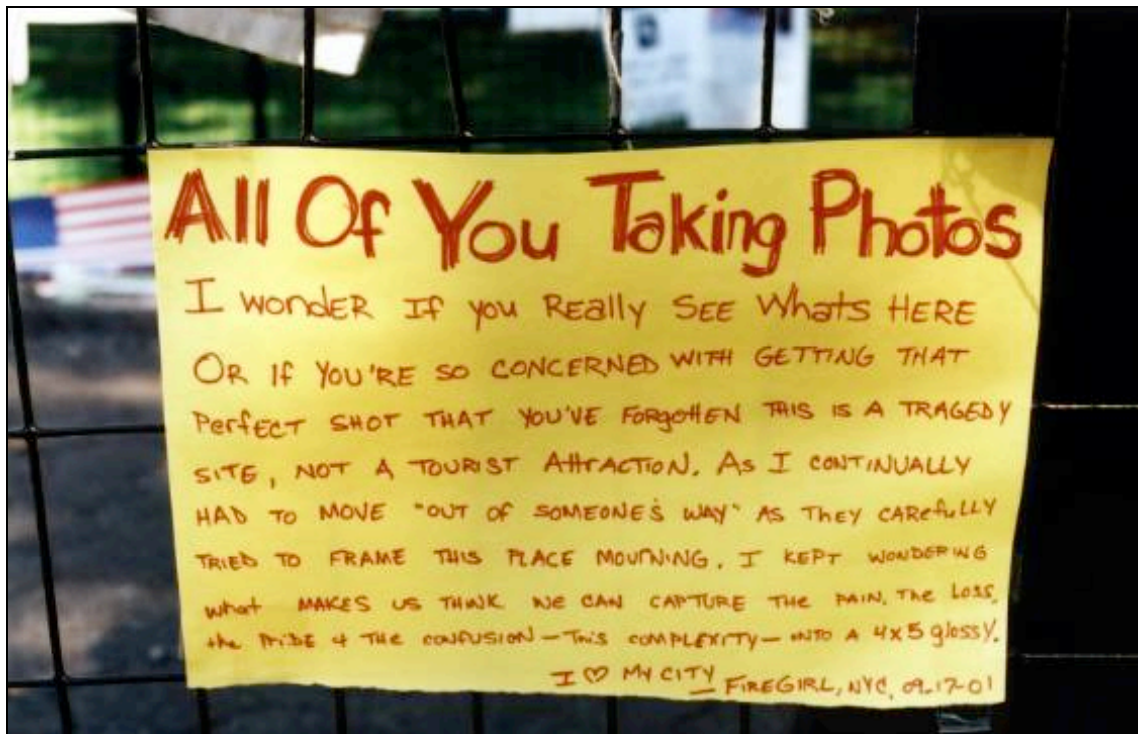 All Of You Taking Photos
I wonder If you Really See Whats Here
Or if you're so concerned with getting that
Perfect shot that you've forgotten this is a tragedy
site, not a tourist attraction. As I continually
had to move "out of someone's way" as they carefully
tried to frame this place mourning. I kept wondering
what makes us think we can capture the pain, the loss,
the pride & the confusion – this complexity – into a 4x5 glossy.
I ♡ my city
– Firegirl, NYC, 09-17-01